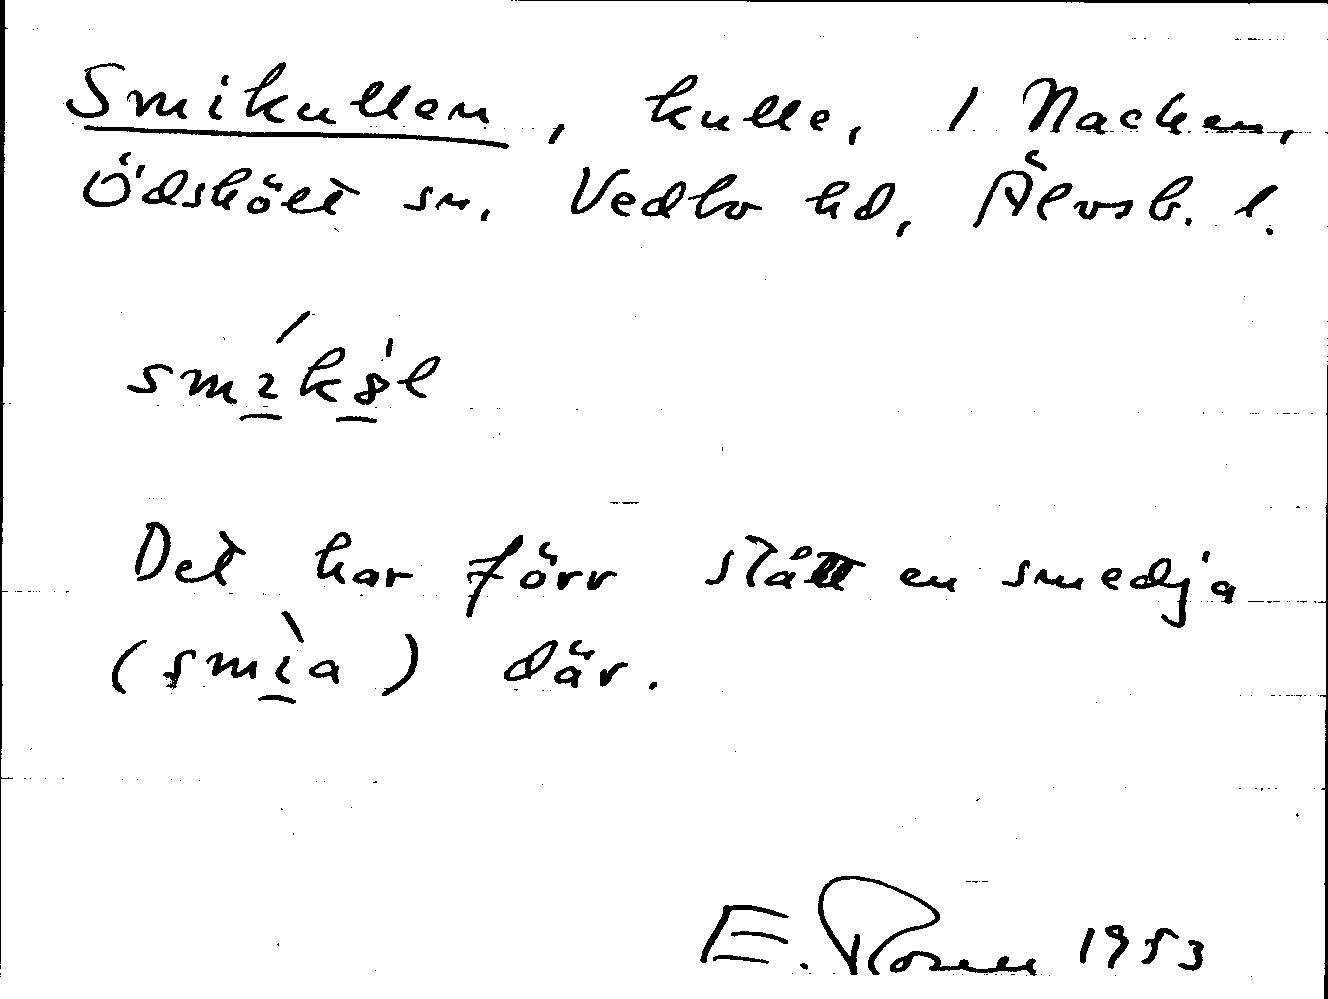 Smikullen, kulle, 1 Nacken,
Ödskölt sn. Vedbo hd, Älvsb. l.
smíkȣ̀l
Det har förr stått en smedja
(smìa) där.
E. Rosen 1953